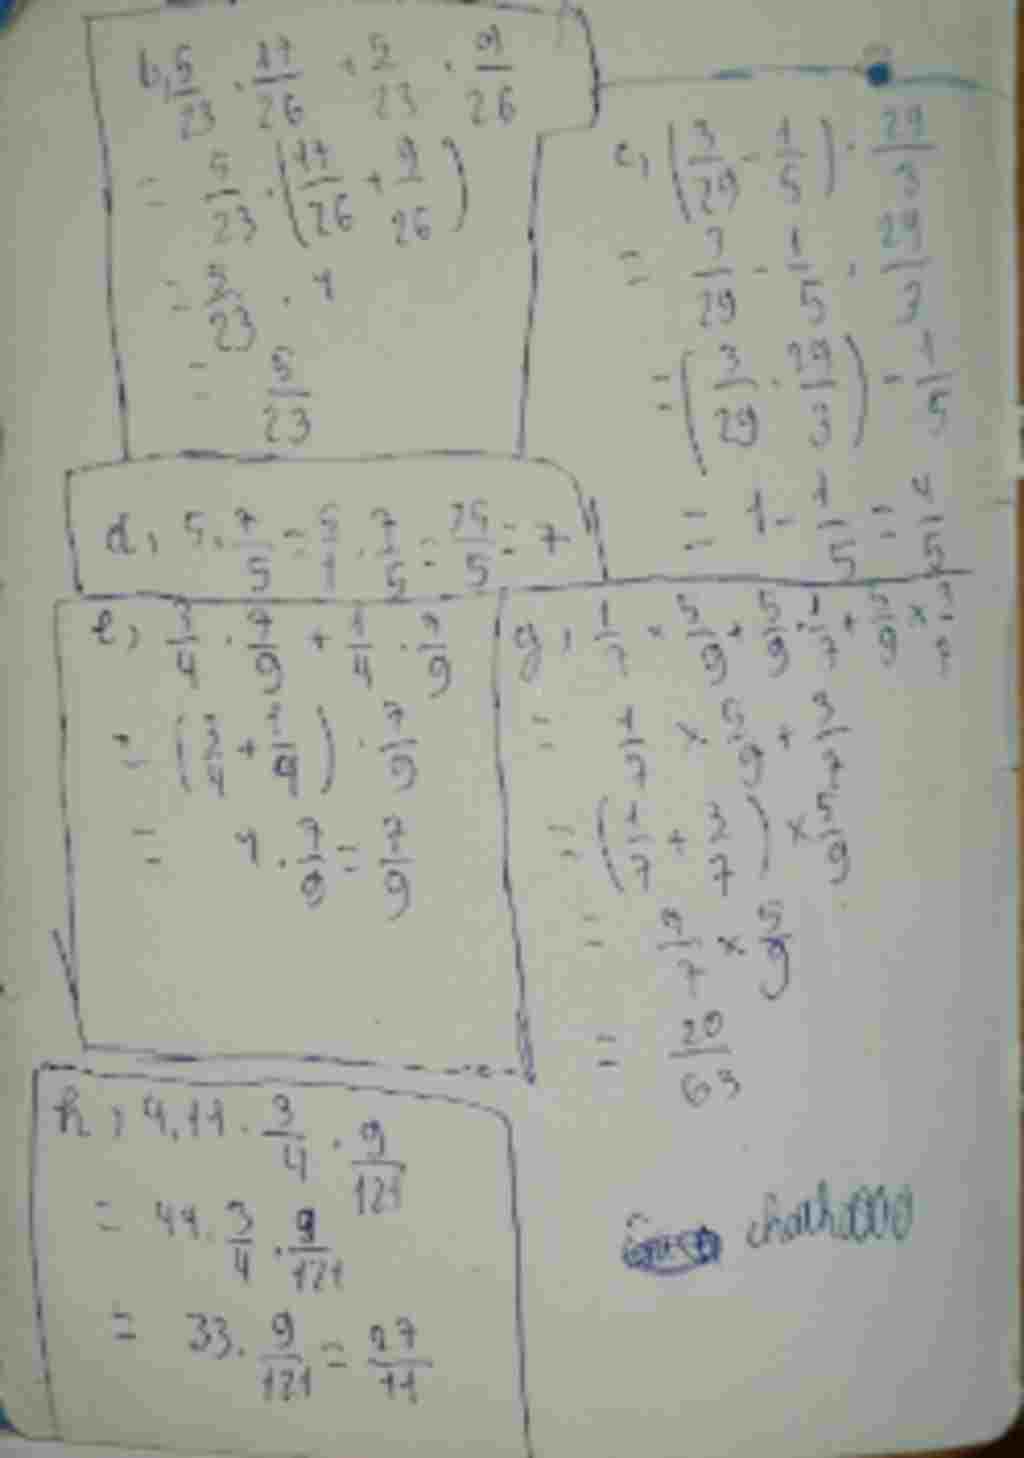 b, 5/23 . 17/26 + 5/23 . 9/26
= 5/23 . (17/26 + 9/26)
= 5/23 . 1
= 5/23
c, (3/29 - 1/5) . 29/3
= 3/29 - 1/5 . 29/3
= (3/29 . 29/3) - 1/5
= 1 - 1/5 = 4/5
d, 5 . 7/5 = 5/1 . 7/5 = 35/5 = 7
e, 3/4 . 7/9 + 1/4 . 7/9
= (3/4 + 1/4) . 7/9
= 1 . 7/9 = 7/9
g, 1/7 × 5/9 + 5/9 . 1/7 + 5/9 × 3/7
= 1/7 × 5/9 + 3/7
= (1/7 + 3/7) × 5/9
= /7 × 5/9
= 20/63
h, 4.11 . 3/4 . 9/121
= 44 . 3/4 . 9/121
= 33 . 9/121 = 27/11